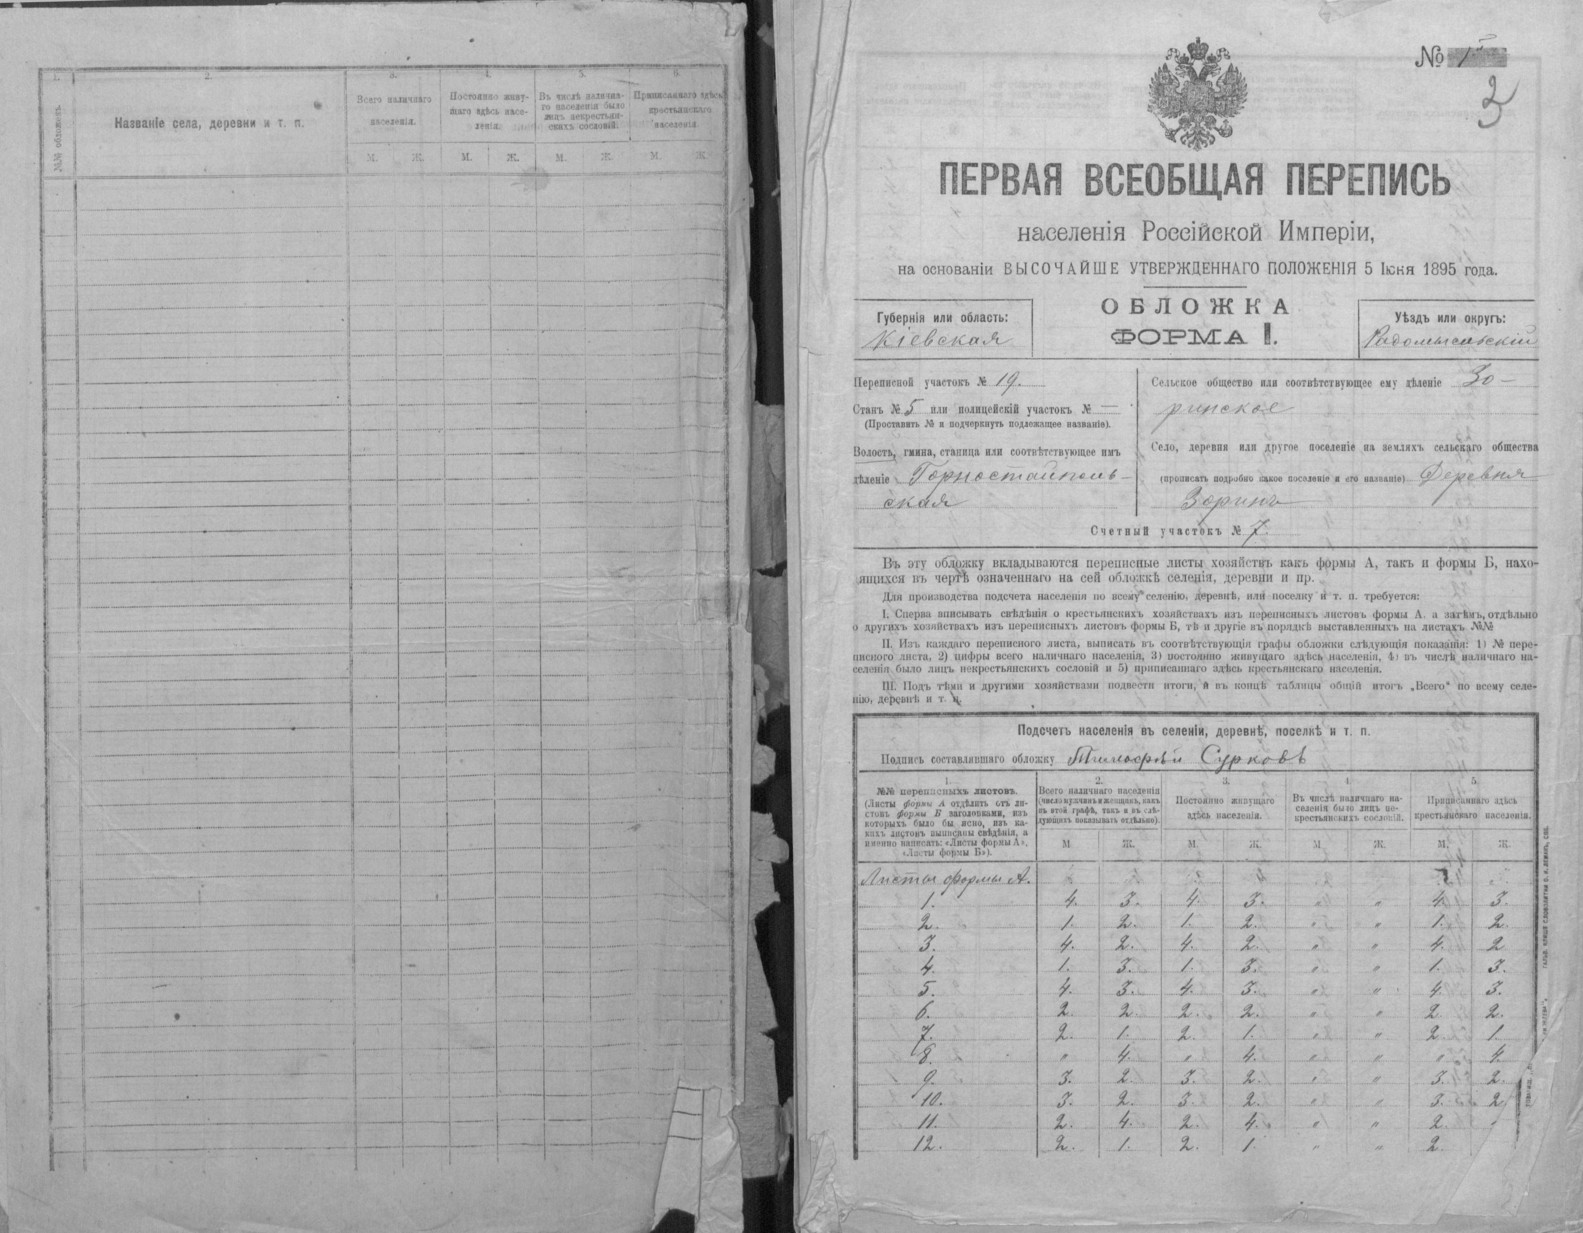 1. 2. 3. 4. 5. 6.
№№ обложекъ.
Названіе села, деревни и т. п.
Всего наличнаго
населенія.
Постоянно живу-
щаго здѣсь насе-
ленія.
Въ числѣ налична-
го населенія было
лицъ некрестьян-
скихъ сословій.
Приписаннаго здѣсь
крестьянскаго
населенія
М. Ж. М. Ж. М. Ж. М. Ж.
№ 1
2
ПЕРВАЯ ВСЕОБЩАЯ ПЕРЕПИСЬ
населенія Россійской Имперіи,
на основаніи ВЫСОЧАЙШЕ УТВЕРЖДЕННАГО ПОЛОЖЕНІЯ 5 Іюня 1895 года.
Губернія или область:
Кіевская
ОБЛОЖКА
ФОРМА I.
Уѣздъ или округъ:
Радомысльскій
Переписной участокъ № 19.
Станъ № 5 или полицейскій участокъ № —
(Проставить № и подчеркнуть подлежащее названіе).
Волость, гмина, станица или соотвѣтствующее имъ
дѣленіе Горностайполь-
ская
Сельское общество или соотвѣтствующее ему дѣленіе Зо-
ринское
Село, деревня или другое поселеніе на земляхъ сельскаго общества
(прописать подробно какое поселеніе и его названіе) Деревня
Зоринъ
Счетный участокъ № 7.
Въ эту обложку вкладываются переписные листы хозяйствъ какъ формы А, такъ и формы Б, нахо-
дящихся въ чертѣ означеннаго на сей обложкѣ селенія, деревни и пр.
Для производства подсчета населенія по всему селенію, деревнѣ, или поселку и т. п. требуется:
I. Сперва вписывать свѣдѣнія о крестьянскихъ хозяйствахъ изъ переписныхъ листовъ формы А. а затѣмъ, отдѣльно
о другихъ хозяйствахъ изъ переписныхъ листовъ формы Б, тѣ и другіе въ порядкѣ выставленныхъ на листахъ №№
II. Изъ каждаго переписного листа, выписать въ соотвѣтствующія графы обложки слѣдующія показанія: 1) № пере-
писного листа, 2) цифры всего наличнаго населенія, 3) постоянно живущаго здѣсь населенія, 4) въ числѣ наличнаго на-
селенія было лицъ некрестьянскихъ сословій и 5) приписаннаго здѣсь крестьянскаго населенія.
III. Подъ тѣми и другими хозяйствами подвести итоги, и въ концѣ таблицы общій итогъ „Всего" по всему селе-
нію, деревнѣ и т. п.
Подсчетъ населенія въ селеніи, деревнѣ, поселкѣ и т. п.
Подпись составлявшаго обложку Тимофѣй Сурковъ
1. 2. 3. 4. 5.
№№ переписныхъ листовъ.
(Листы формы А отдѣлить отъ ли-
стовъ формы Б заголовками, изъ
которыхъ было бы ясно, изъ ка-
кихъ листовъ выписаны свѣдѣнія, а
именно написать: «Листы формы А»,
«Листы формы Б»).
Всего наличнаго населенія
(число мужчинъ и женщинъ, какъ
въ этой графѣ, такъ и въ слѣ-
дующихъ показывать отдѣльно).
Постоянно живущаго
здѣсь населенія.
Въ числѣ наличнаго на-
селенія было лицъ не-
крестьянскихъ сословій.
Приписаннаго здѣсь
крестьянскаго населенія.
М. Ж. М. Ж. М. Ж. М. Ж.
Листы формы А.
1. 4. 3. 4. 3. " " 4. 3.
2. 1. 2. 1. 2. " " 1. 2.
3. 4. 2. 4. 2. " " 4. 2
4. 1. 3. 1. 3. " " 1. 3.
5. 4. 3. 4. 3. " " 4. 3.
6. 2. 2. 2. 2. " " 2 2.
7. 2. 1. 2. 1. " " 2 1.
8. " 4. " 4. " " " 4.
9. 3. 2. 3. 2. " " 3. 2.
10. 3. 2. 3. 2. " " 3. 2
11. 2. 4. 2. 4. " " 2.
12. 2. 1. 2. 1. " " 2.